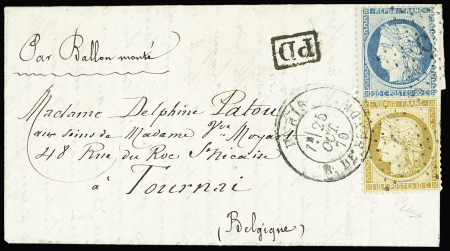 Par Ballon monté
PD
REPUB. FRANC.
20 C. POSTES 20 C.
Madame Delphine Patou
aux soins de Madame Vve Moyart
48 Rue du Roc St Nicaise
à Tournai
(Belgique)
PARIS
25
OCT.
70
REPUB. FRANC.
10 C. POSTES 10 C.